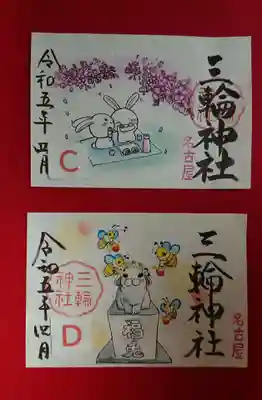 三輪神社
名古屋
令和五年 四月
C
三輪神社
名古屋
三輪
神社
福兎
令和五年四月
D